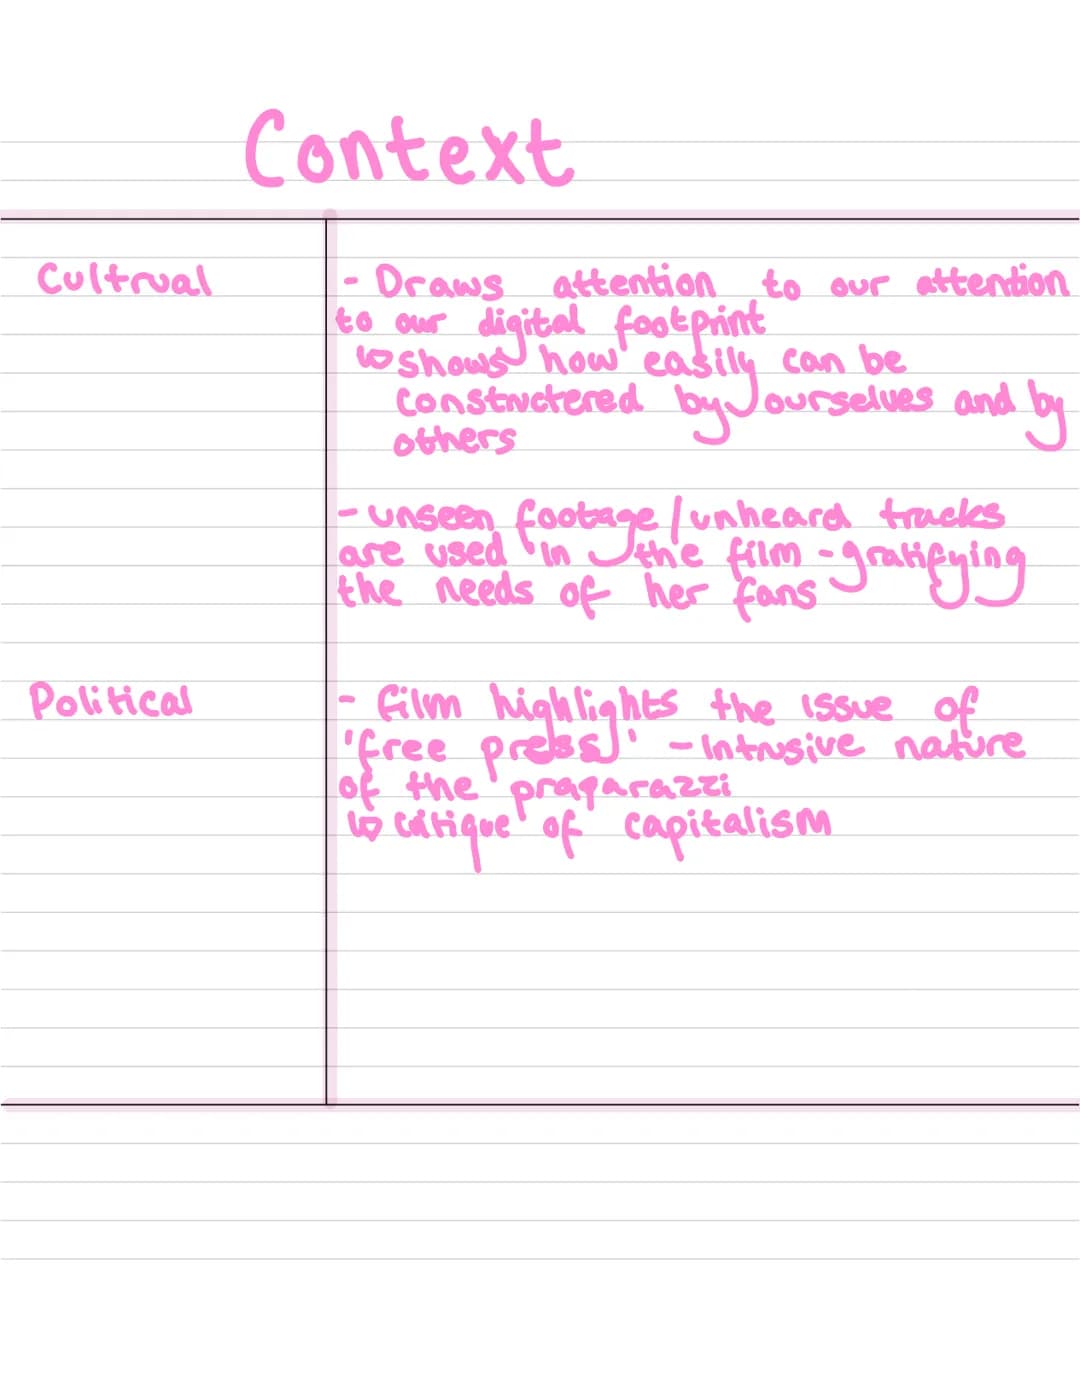 Context
Cultrual
- Draws attention to our attention
to our digital footprint
↳ shows how easily can be
constructered by ourselves and by
others
- unseen footage/unheard tracks
are used in the film - gratifying
the needs of her fans
Political
- film highlights the issue of
'free press' - Intrusive nature
of the praparazzi
↳ critique of capitalism